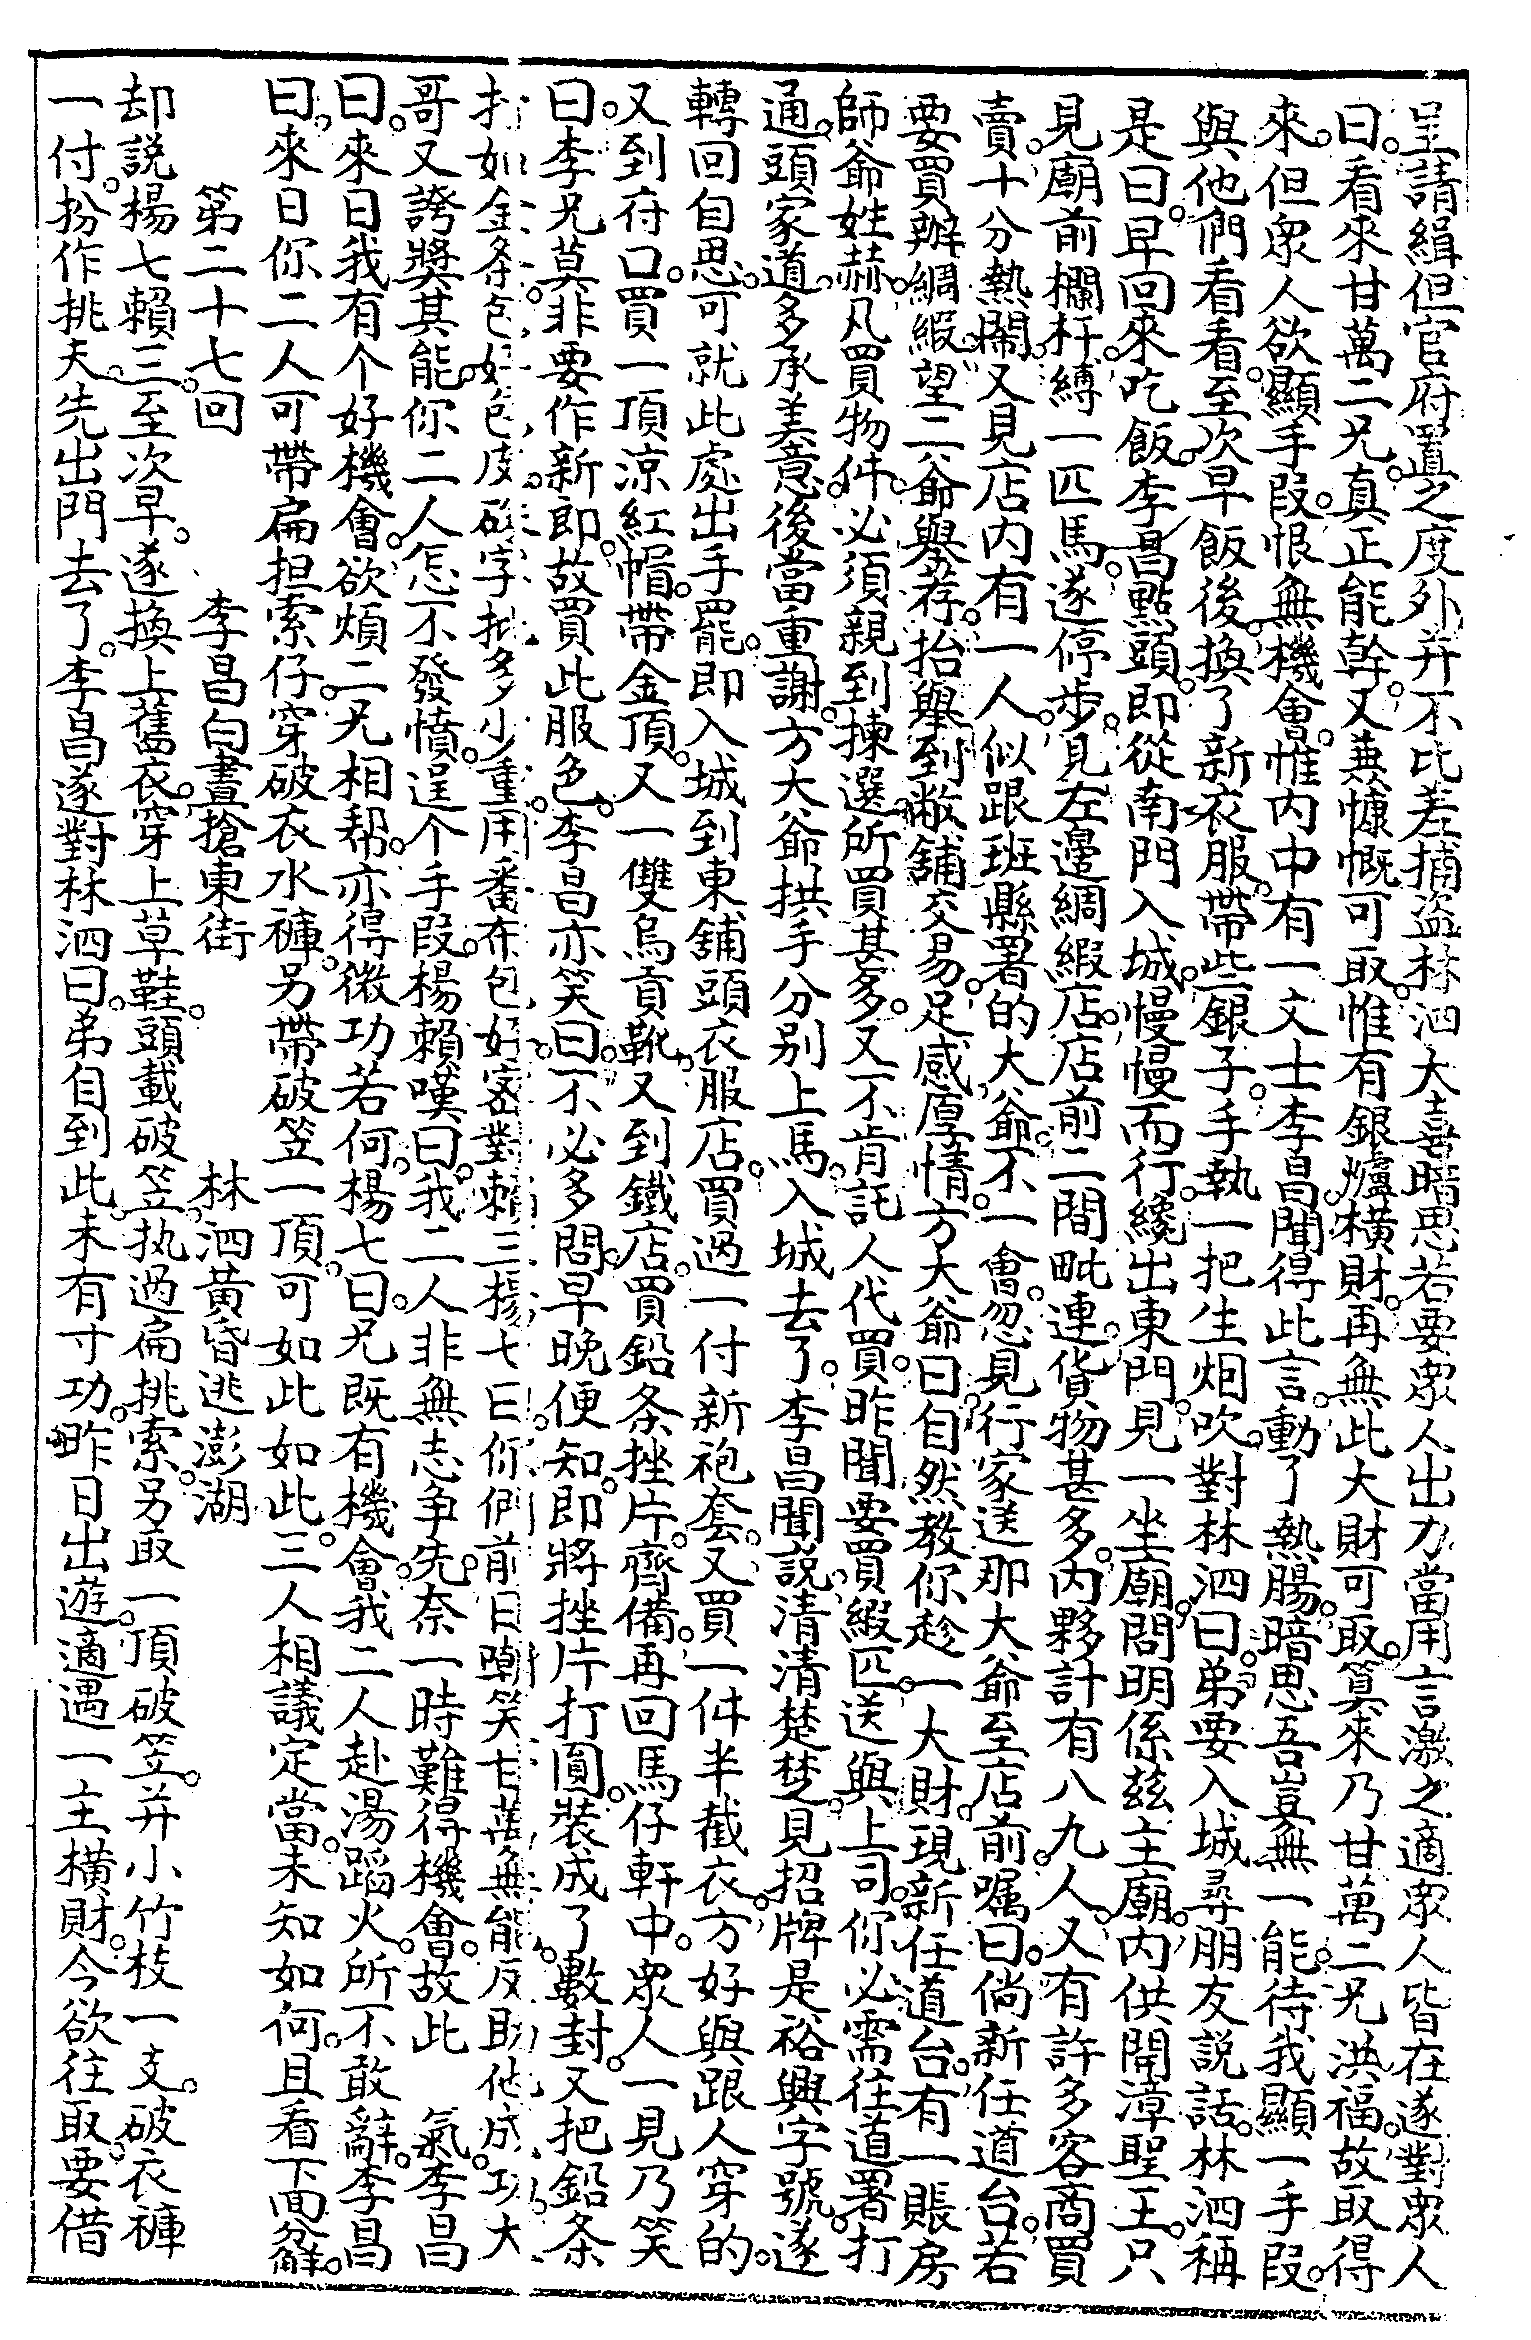 呈請緝但官府置之度外并不比差捕盜林泗大喜暗思若要眾人出力當用言激之適眾人皆在遂對眾人
曰看來甘萬二兄真正能幹又兼慷慨可取惟有銀爐橫財再無此大財可取算來乃甘萬二兄洪福故取得
來但眾人欲顯手段恨無機會惟內中有一文士李昌聞得此言動了熱腸暗思吾豈無一能待我顯一手段
與他們看看至次早飯後換了新衣服帶些銀子手執一把生烟吹對林泗曰弟要入城尋朋友說話林泗稱
是曰早回來吃飯李昌點頭即從南門入城慢慢而行纔出東門見一坐廟問明係茲主廟內供開漳聖王只
見廟前欄杆縛一匹馬遂停步見左邊綢緞店店前二間毗連貨物甚多內夥計有八九人又有許多客商買
賣十分熱鬧又見店內有一人似跟班縣署的大爺不一會忽見行家送那大爺至店前嘱曰倘新任道台若
要買辦綢緞望二爺舉荐抬舉到敝舖交易足感厚情方大爺曰自然教你趁一大財現新任道台有一賬房
師爺姓赫凡買物件必須親到揀選所買甚多又不肯託人代買昨聞要買緞匹送與上司你必需往道署打
通頭家道多承美意後當重謝方大爺拱手分別上馬入城去了李昌聞說清清楚楚見招牌是裕興字號遂
轉回自思可就此處出手罷即入城到東舖頭衣服店買過一付新袍套又買一件半截衣方好與跟人穿的
又到府口買一頂涼紅帽帶金頂又一雙烏貢靴又到鐵店買鉛条挫片齊備再回馬仔軒中眾人一見乃笑
曰李兄莫非要作新郎故買此服色李昌亦笑曰不必多問早晚便知即將挫片打圓裝成了數封又把鉛条
打如金条包好包皮 字 多少重用番布包好密對賴三楊七曰你們前日嘲笑甘萬無能反助他成功大
哥又誇獎其能你二人怎不發憤逞个手段楊賴嘆曰我二人非無志爭先奈一時難得機會故此 氣李昌
曰來日我有个好機會欲煩二兄相帮亦得微功若何楊七曰兄既有機會我二人赴湯蹈火所不敢辭李昌
曰來日你二人可帶扁担索仔穿破衣水褲另帶破笠一頂可如此如此三人相議定當未知如何且看下面分觧
第二十七回 李昌白晝搶東街 林泗黃昏逃澎湖
却説楊七賴三至次早遂換上舊衣穿上草鞋頭載破笠执過扁挑索另取一頂破笠并小竹枝一支破衣褲
一付扮作挑夫先出門去了李昌遂對林泗曰弟自到此未有寸功昨日出遊適遇一主橫財今欲往取要借